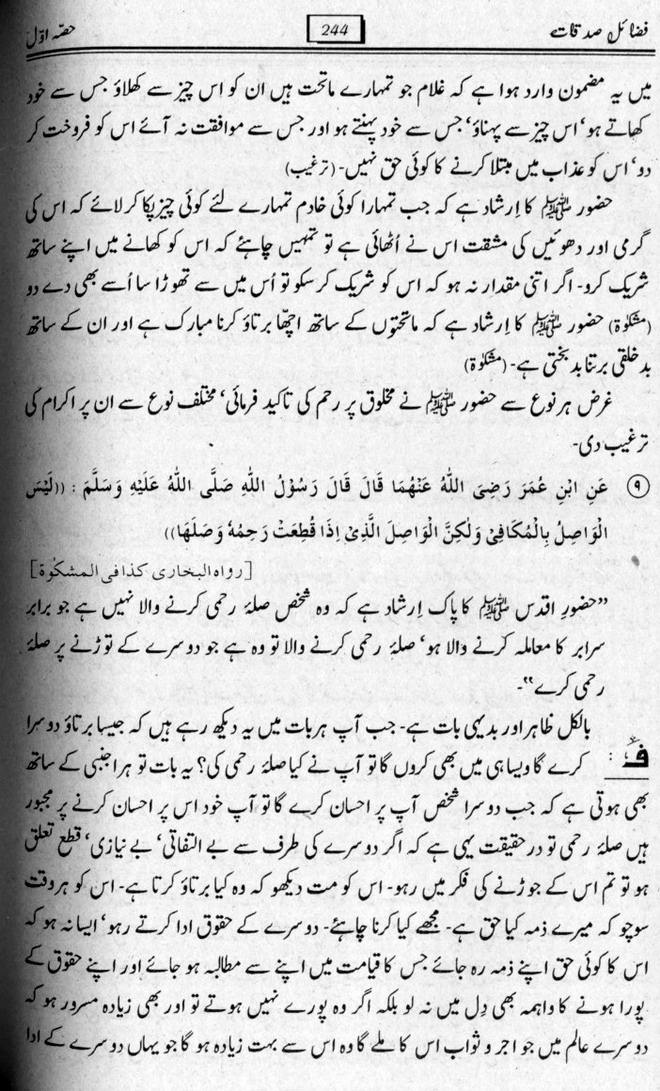 فضائل صدقات 244 حصہ اوّل
میں یہ مضمون وارد ہوا ہے کہ غلام جو تمہارے ماتحت ہیں ان کو اس چیز سے کھلاؤ جس سے خود
کھاتے ہو‘ اس چیز سے پہناؤ‘ جس سے خود پہنتے ہو اور جس سے موافقت نہ آئے اس کو فروخت کر
دو‘ اس کو عذاب میں مبتلا کرنے کا کوئی حق نہیں۔ (ترغیب)
حضور ﷺ کا اِرشاد ہے کہ جب تمہارا کوئی خادم تمہارے لئے کوئی چیز پکا کر لائے کہ اس کی
گرمی اور دھوئیں کی مشقت اس نے اُٹھائی ہے تو تمہیں چاہئے کہ اس کو کھانے میں اپنے ساتھ
شریک کرو۔ اگر اتنی مقدار نہ ہو کہ اس کو شریک کر سکو تو اُس میں سے تھوڑا سا اُسے بھی دے دو
(مشکوٰۃ) حضور ﷺ کا اِرشاد ہے کہ ماتحتوں کے ساتھ اچھا برتاؤ کرنا مبارک ہے اور ان کے ساتھ
بدخلقی برتنا بدبختی ہے۔ (مشکوٰۃ)
غرض ہر نوع سے حضور ﷺ نے مخلوق پر رحم کی تاکید فرمائی‘ مختلف نوع سے ان پر اکرام کی
ترغیب دی۔
۹ عَنِ ابْنِ عُمَرَ رَضِیَ اللّٰہُ عَنْھُمَا قَالَ قَالَ رَسُوْلُ اللّٰہِ صَلَّی اللّٰہُ عَلَیْہِ وَسَلَّمَ : ((لَیْسَ
الْوَاصِلُ بِالْمُکَافِیْ وَلٰکِنَّ الْوَاصِلَ الَّذِیْ اِذَا قُطِعَتْ رَحِمُہٗ وَصَلَھَا))
[رواہ البخاری کذا فی المشکوٰۃ]
”حضورِ اقدس ﷺ کا پاک اِرشاد ہے کہ وہ شخص صلۂ رحمی کرنے والا نہیں ہے جو برابر
سرابر کا معاملہ کرنے والا ہو‘ صلۂ رحمی کرنے والا تو وہ ہے جو دوسرے کے توڑنے پر صلۂ
رحمی کرے“۔
بالکل ظاہر اور بدیہی بات ہے۔ جب آپ ہر بات میں یہ دیکھ رہے ہیں کہ جیسا برتاؤ دوسرا
ف : کرے گا ویسا ہی میں بھی کروں گا تو آپ نے کیا صلۂ رحمی کی؟ یہ بات تو ہر اجنبی کے ساتھ
بھی ہوتی ہے کہ جب دوسرا شخص آپ پر احسان کرے گا تو آپ خود اس پر احسان کرنے پر مجبور
ہیں صلۂ رحمی تو درحقیقت یہی ہے کہ اگر دوسرے کی طرف سے بے التفاتی‘ بے نیازی‘ قطع تعلق
ہو تو تم اس کے جوڑنے کی فکر میں رہو۔ اس کو مت دیکھو کہ وہ کیا برتاؤ کرتا ہے۔ اس کو ہر وقت
سوچو کہ میرے ذمہ کیا حق ہے۔ مجھے کیا کرنا چاہئے۔ دوسرے کے حقوق ادا کرتے رہو‘ ایسا نہ ہو کہ
اس کا کوئی حق اپنے ذمہ رہ جائے جس کا قیامت میں اپنے سے مطالبہ ہو جائے اور اپنے حقوق کے
پورا ہونے کا واہمہ بھی دِل میں نہ لو بلکہ اگر وہ پورے نہیں ہوتے تو اور بھی زیادہ مسرور ہو کہ
دوسرے عالم میں جو اجر و ثواب اس کا ملے گا وہ اس سے بہت زیادہ ہو گا جو یہاں دوسرے کے ادا